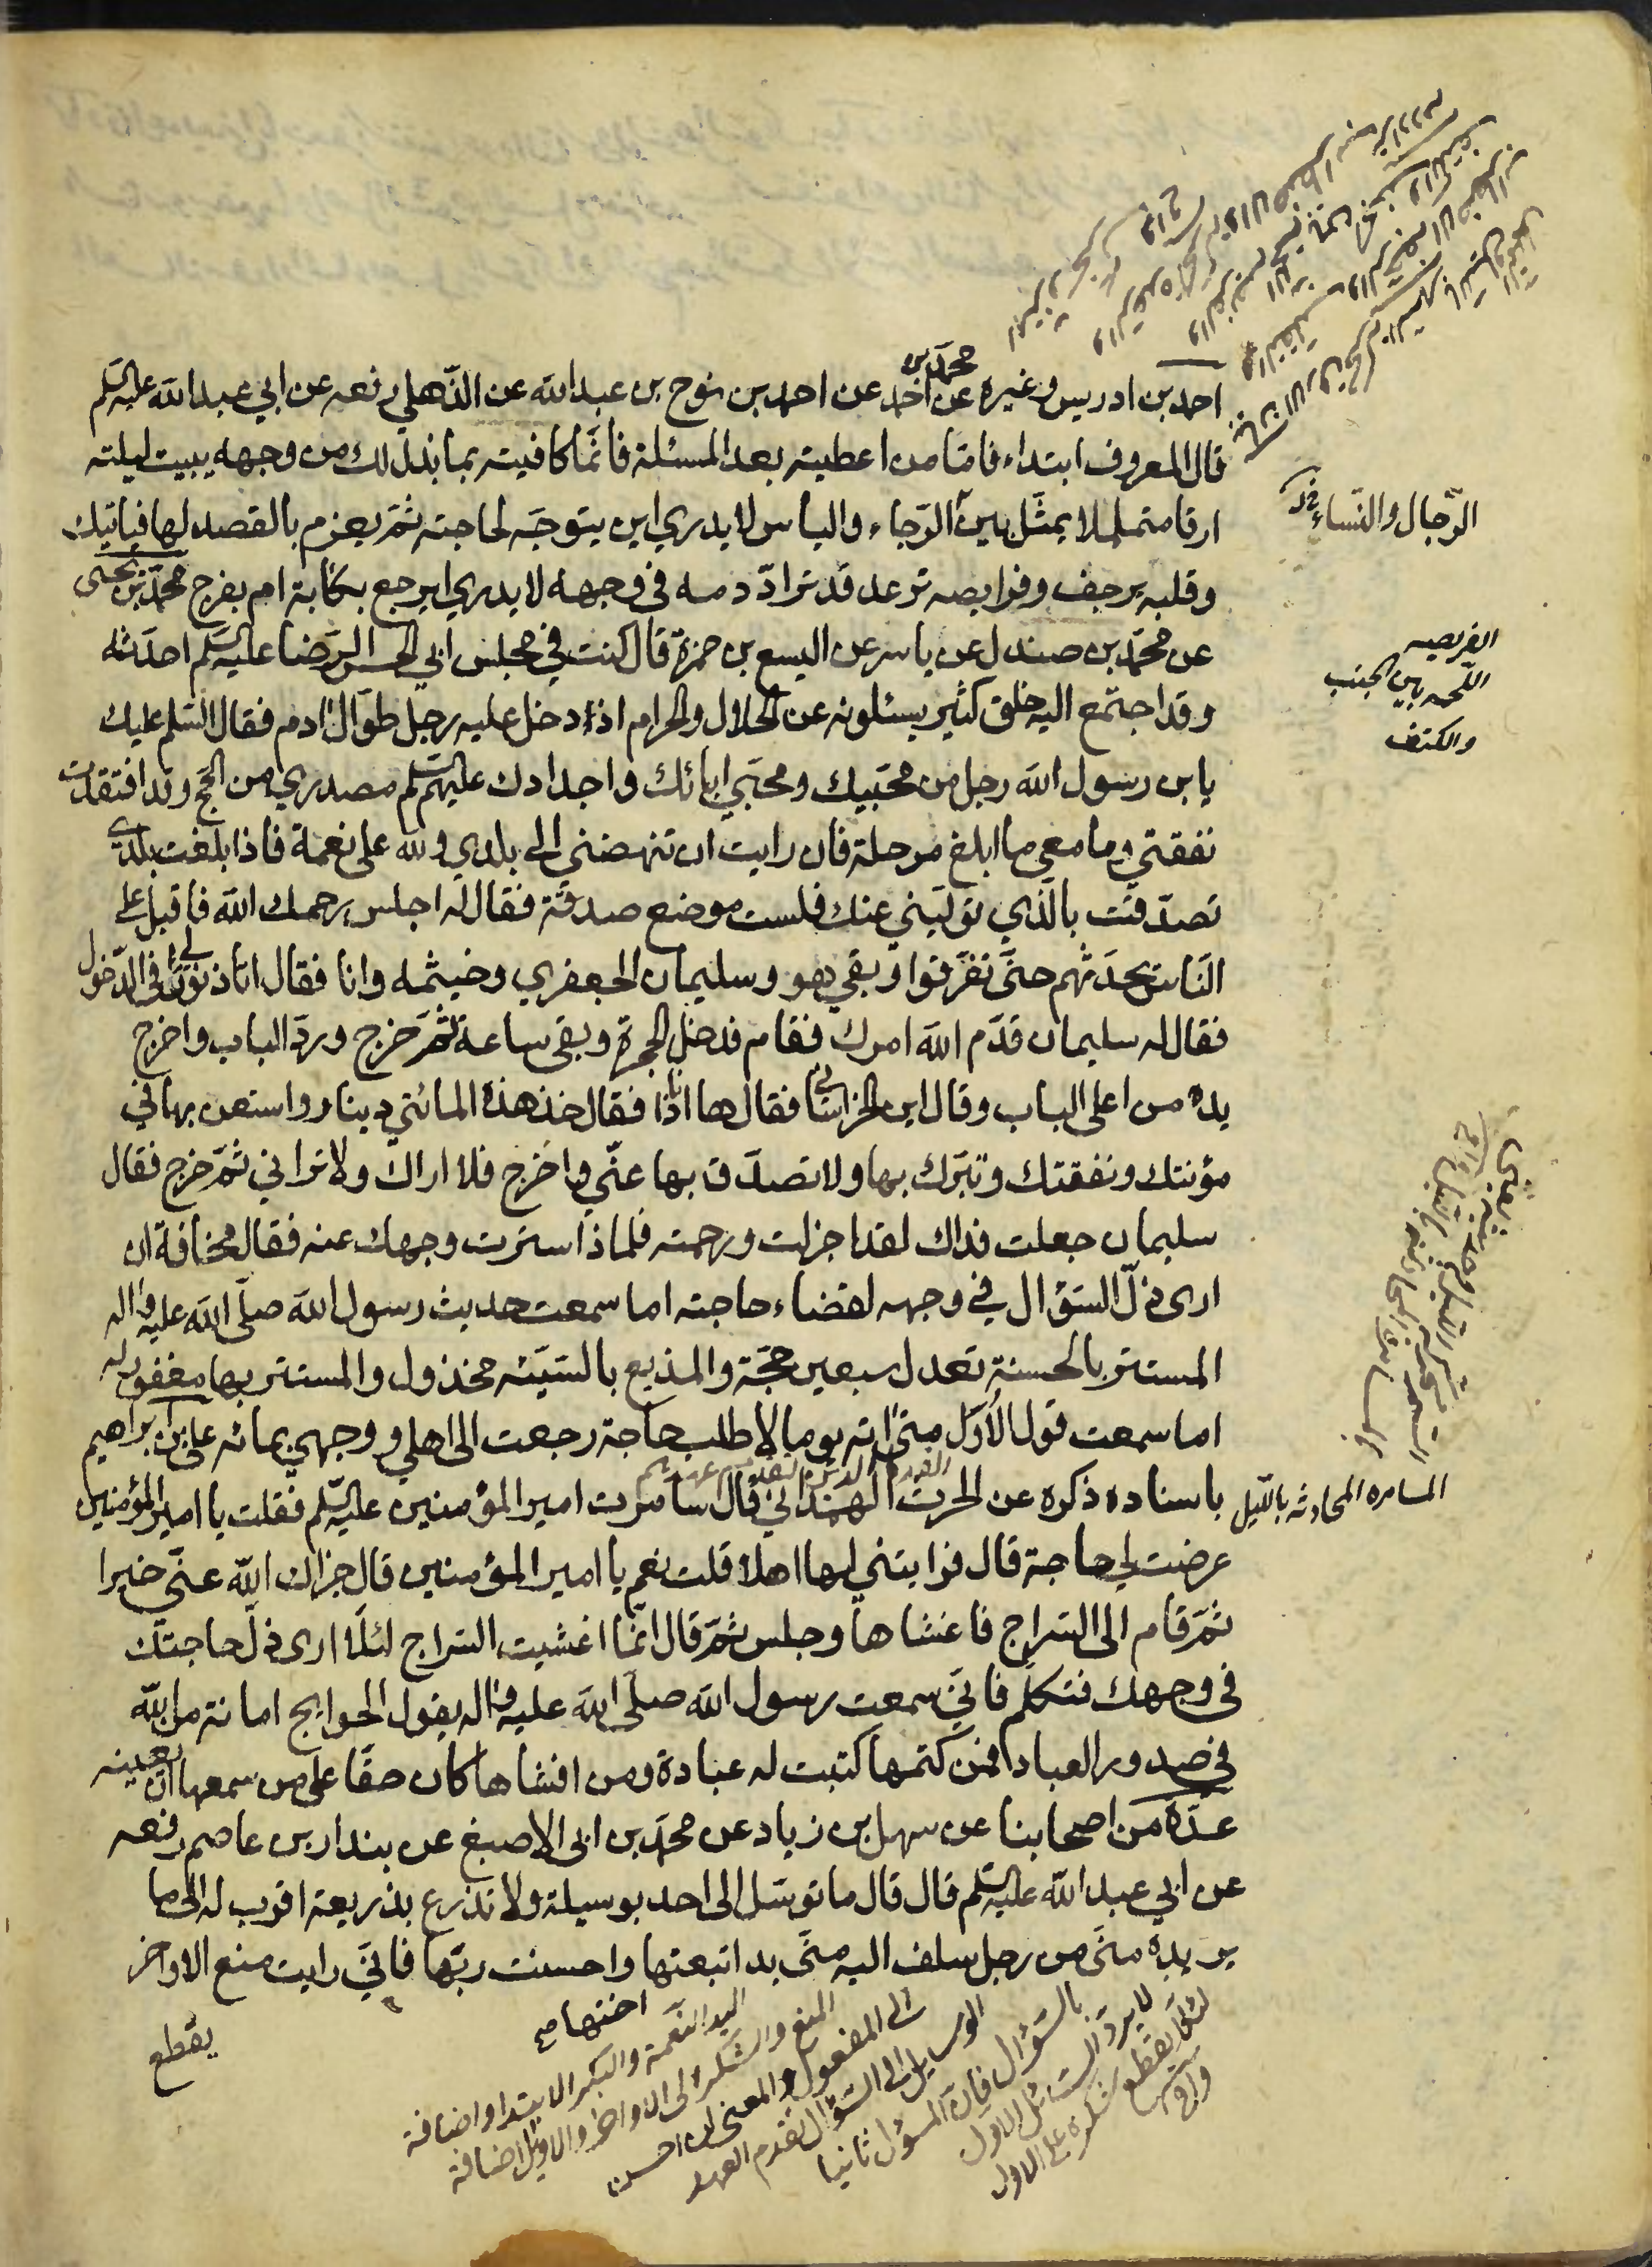 احمد بن ادريس وغيره عن محمد بن احمد عن احمد بن نوح بن عبدالله عن الذهلي رفعه عن ابي عبدالله عليه السلم
قال المعروف ابتداء فامّا من اعطيته بعد المسئلة فانّما كافيته بما بذل لك من وجهه يبيت ليلته
ارقا متململا يمثّل بين الرّجاء والياس لا يدري اين يتوجّه لحاجته ثمّ يعزم بالقصد لها فياتيك
وقلبه يرجف وفرايصه ترعد قد ترادّ دمه في وجهه لا يدري ايرجع بكابة ام بفرح محمّد بن يحيى
عن محمّد بن صندل عن ياسر عن اليسع بن حمزة قال كنت في مجلس ابي الحسن الرّضا عليه السلم احدّثه
وقد اجتمع اليه خلق كثير يسئلونه عن الحلال والحرام اذ دخل عليه رجل طوال ادم فقال السّلم عليك
يابن رسول الله رجل من محبّيك ومحبّي ابائك واجدادك عليهم السلم مصدري من الحجّ وقد افتقدت
نفقتي وما معي ما ابلغ مرحلة فان رايت ان تنهضني الى بلدي ولله علي نعمة فاذا بلغت بلدي
تصدّقت بالّذي تولّيني عنك فلست موضع صدقة فقال له اجلس رحمك الله فاقبل على
النّاس يحدّثهم حتّى تفرّقوا وبقي هو وسليمان الجعفري وخيثمه وانا فقال اتاذنون لي في الدّخول
فقال له سليمان قدّم الله امرك فقام فدخل الحجرة وبقي ساعة ثمّ خرج وردّ الباب واخرج
يده من اعلى الباب وقال اين الخراساني فقال ها انا ذا فقال خذ هذه المائتي دينار واستعن بها في
مؤنتك ونفقتك وتبرّك بها ولا تصدّق بها عنّي واخرج فلا اراك ولا تراني ثمّ خرج فقال
سليمان جعلت فداك لقد اجزلت ورحمت فلماذا سترت وجهك عنه فقال مخافة ان
ارى ذلّ السّؤال في وجهه لقضاء حاجته اما سمعت حديث رسول الله صلّى الله عليه واله
المستتر بالحسنة تعدل سبعين حجّة والمذيع بالسّيّئه مخذول والمستتر بها مغفور له
اما سمعت قول الاوّل متى اته يوما لاطلب حاجة رجعت الى اهلي ووجهي بمائه علي بن ابراهيم
باسناده ذكره عن الحرث الهمداني قال سامرت امير المؤمنين عليه السلم فقلت يا امير المؤمنين
عرضت لي حاجة قال فرايتني لها اهلا قلت نعم يا امير المؤمنين قال جزاك الله عنّي خيرا
ثمّ قام الى السّراج فاغشاها وجلس ثمّ قال انّما اغشيت السّراج لئلّا ارى ذلّ حاجتك
في وجهك فتكلّم فانّي سمعت رسول الله صلّى الله عليه واله يقول الحوايج امانة من الله
في صدور العباد فمن كتمها كتبت له عبادة ومن افشاها كان حقّا على من سمعها ان يعينه
عدّة من اصحابنا عن سهل بن زياد عن محمّد بن ابي الاصبغ عن بندار بن عاصم رفعه
عن ابي عبد الله عليه السلم قال قال ما توسّل الي احد بوسيلة ولا تذرع بذريعة اقرب له الى ما
يريده منّي من رجل سلف اليه منّي يد اتبعتها اختها واحسنت ربّها فانّي رايت منع الاواخر
يقطع
الرّجال والنّساء
الفريصه
اللّحمه بين الجنب
والكتف
المسامره المحادثه باللّيل
اليد النّعمة والبكر الابتدا واضافة
المنع والشّكر الى الاواخر والاوايل اضافة
الى المفعول والمعنى ان احسن
الوسايل الى السّؤال تقدم العهد
بالسّؤال فان المسؤل ثانيا
لا يردّ السّائل الاول
لئلّا يقطع شكره على الاول